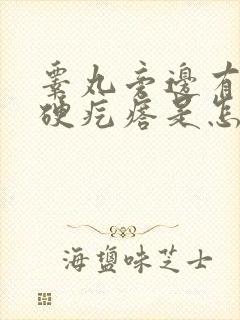 睾丸旁边有
硬疙瘩是怎
海盐味芝士